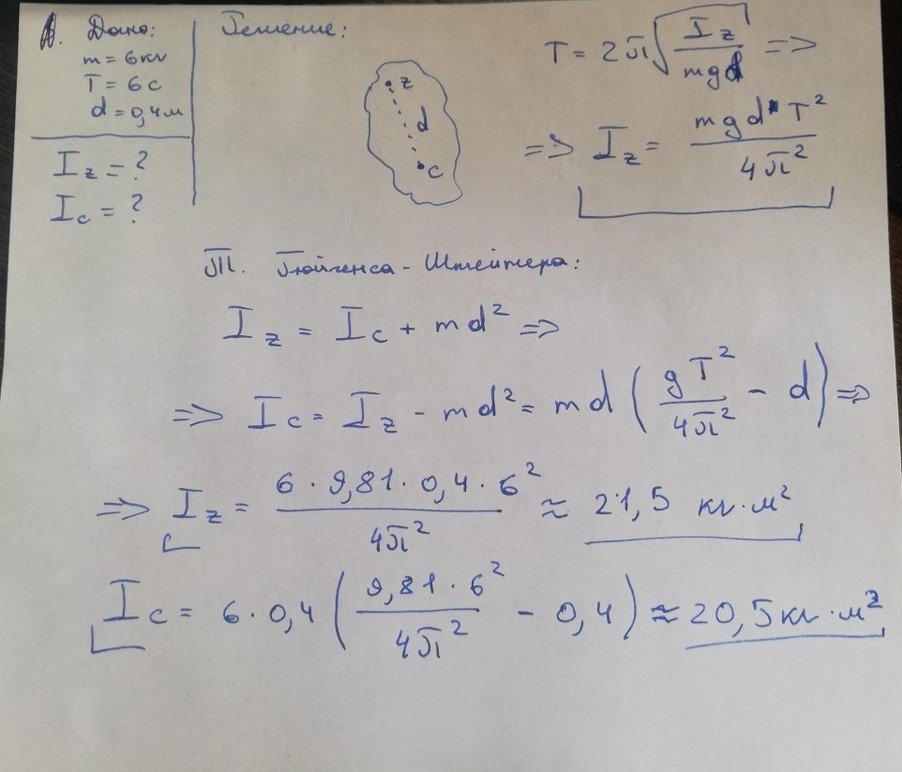 1. Дано:
m = 6 кг
T = 6 с
d = 0,4 м
I_z = ?
I_c = ?
Решение:
z
d
c
T = 2π√(I_z / mgd) =>
=> I_z = mgd T² / 4π²
Т. Гюйгенса - Штейнера:
I_z = I_c + md² =>
=> I_c = I_z - md² = md (gT² / 4π² - d) =>
=> I_z = 6 · 9,81 · 0,4 · 6² / 4π² ≈ 21,5 кг·м²
I_c = 6 · 0,4 (9,81 · 6² / 4π² - 0,4) ≈ 20,5 кг·м²